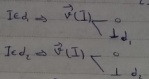 I∈d₁ ⇒ v⃗(I) < 0
⊥ d₁
I∈d₂ ⇒ v⃗(I) < 0
⊥ d₂